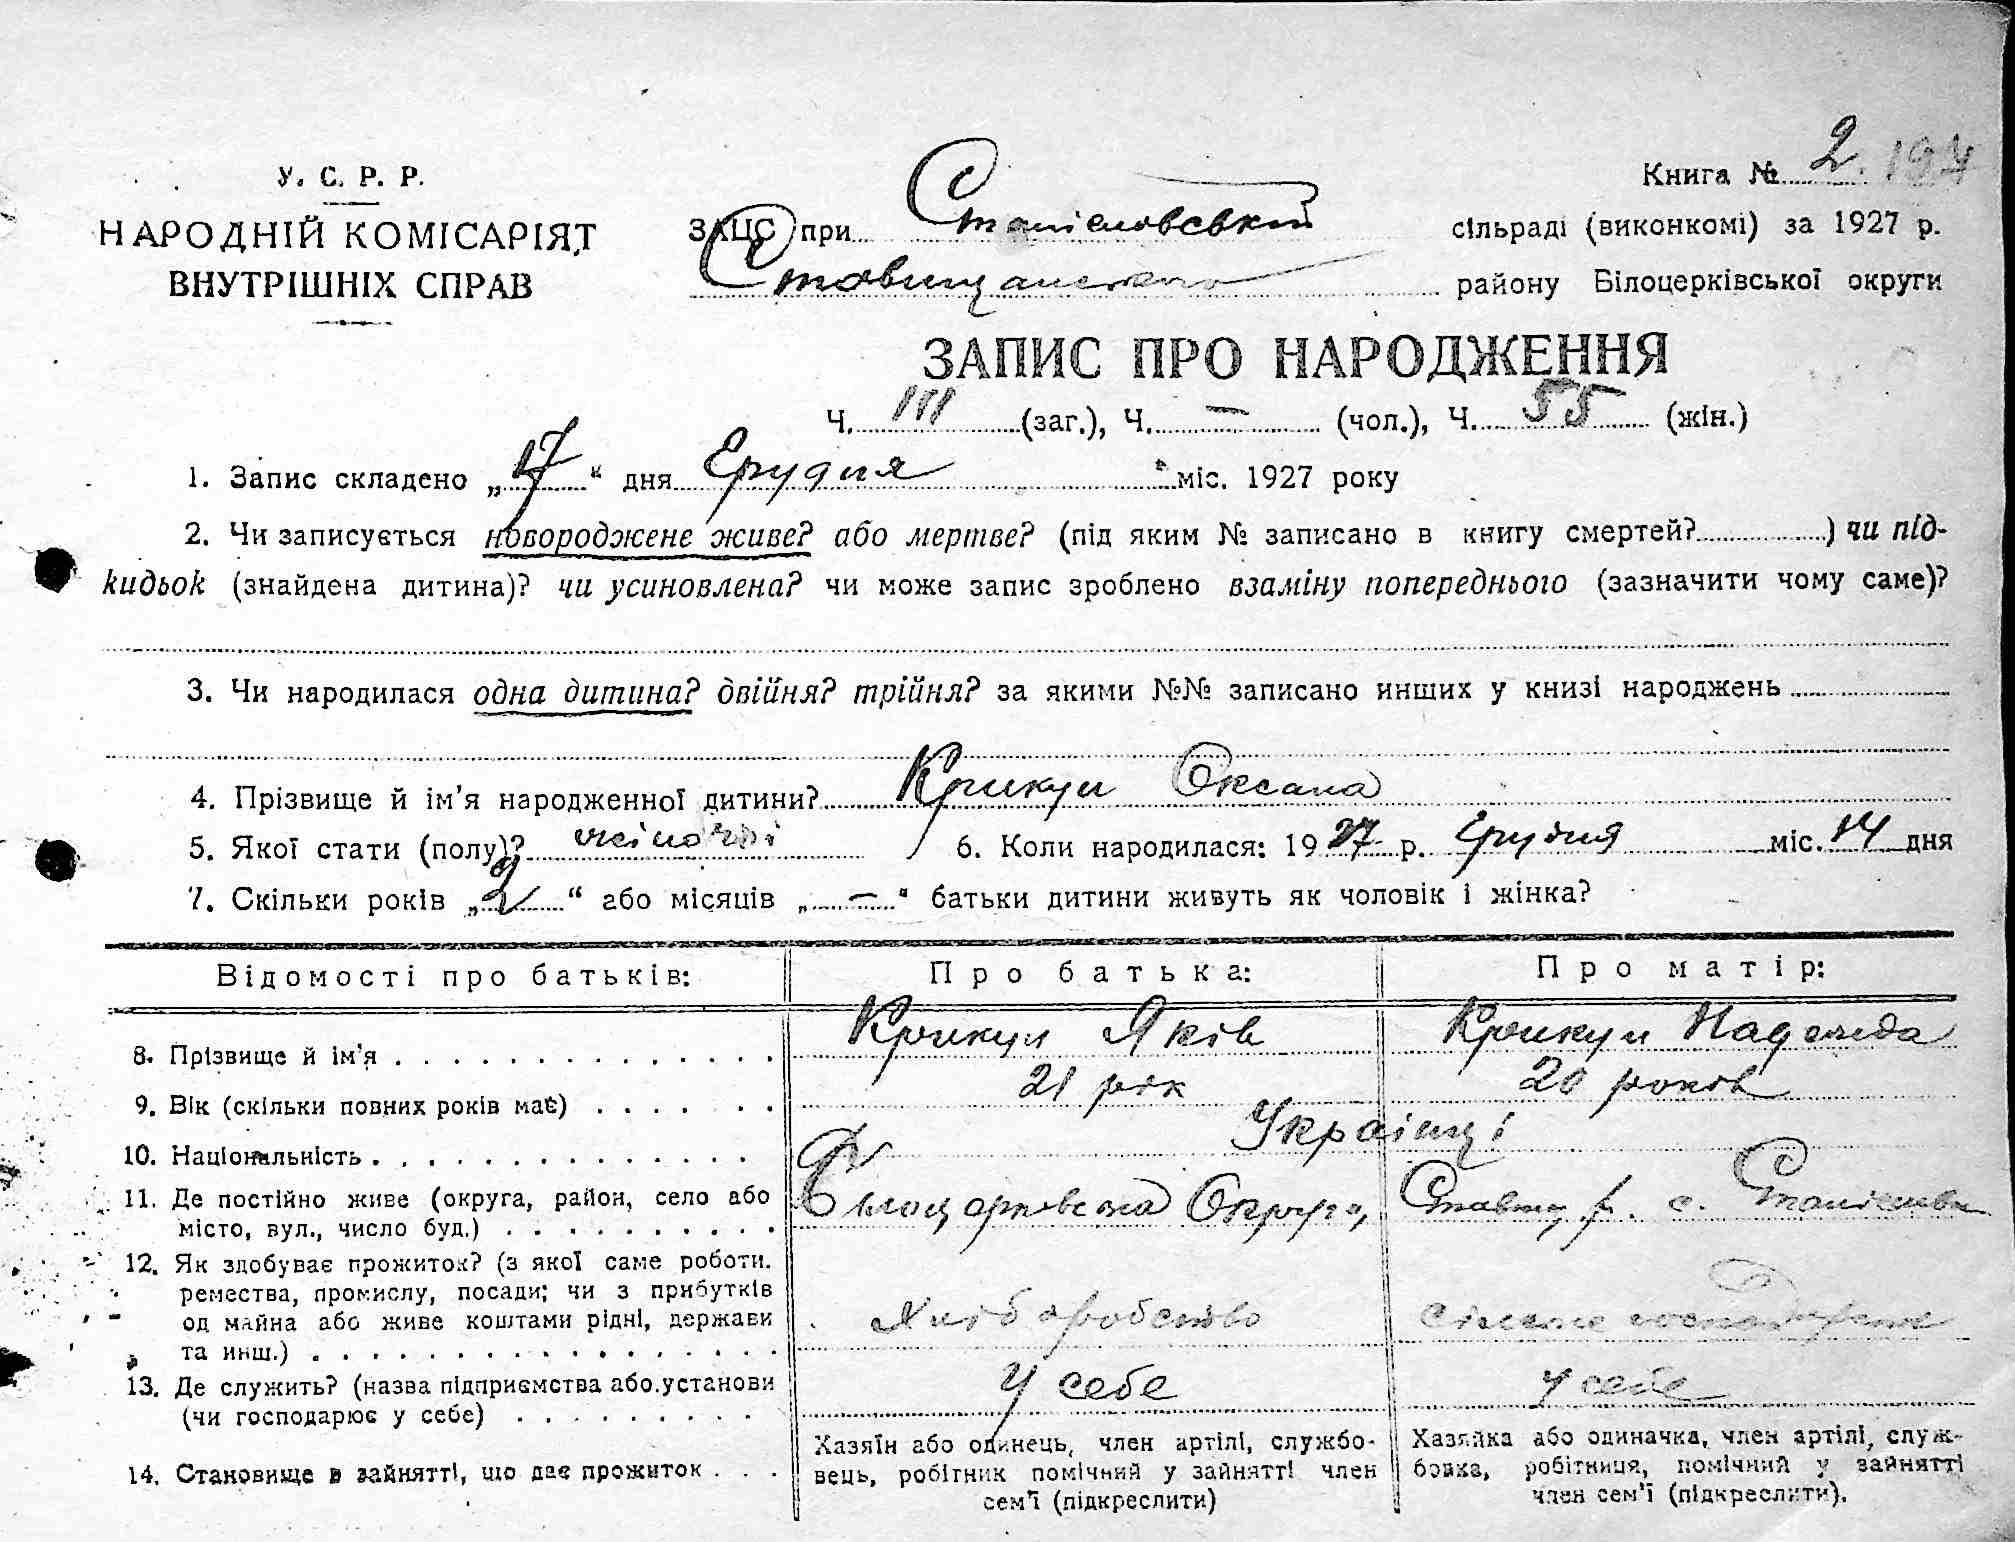 У. С. Р. Р.
НАРОДНІЙ КОМІСАРІЯТ
ВНУТРІШНІХ СПРАВ
Книга № 2. 194
ЗАЦС при Станіславській сільраді (виконкомі) за 1927 р.
Ставищанського району Білоцерківської округи
ЗАПИС ПРО НАРОДЖЕННЯ
Ч. 111 (заг.), Ч. — (чол.), Ч. 55 (жін.)
1. Запис складено „17“ дня Грудня міс. 1927 року
2. Чи записується новороджене живе? або мертве? (під яким № записано в книгу смертей? ) чи під-
кидьок (знайдена дитина)? чи усиновлена? чи може запис зроблено взаміну попереднього (зазначити чому саме)?
3. Чи народилася одна дитина? двійня? трійня? за якими №№ записано инших у книзі народжень
4. Прізвище й ім'я народженної дитини? Крикун Оксана
5. Якої стати (полу)? жіночої 6. Коли народилася: 1927 р. Грудня міс. 14 дня
7. Скільки років „2“ або місяців „—“ батьки дитини живуть як чоловік і жінка?
Відомості про батьків: Про батька: Про матір:
8. Прізвище й ім'я Крикун Яків Крикун Надежда
9. Вік (скільки повних років має) 21 рік 20 років
10. Національність Українці
11. Де постійно живе (округа, район, село або
місто, вул., число буд.) Білоцерківська Округа, Ставищ. р. с.
12. Як здобуває прожиток? (з якої саме роботи.
ремества, промислу, посади; чи з прибутків
од майна або живе коштами рідні, держави
та инш.) Хліборобство Сільське
13. Де служить? (назва підприємства або установи
(чи господарює у себе) У себе У себе
14. Становище в зайнятті, що дає прожиток
Хазяїн або одинець, член артілі, службо-
вець, робітник помічний у зайнятті член
сем'ї (підкреслити)
Хазяйка або одиначка, член артілі, служ-
бовка, робітниця, помічний у зайнятті
член сем'ї (підкреслити).